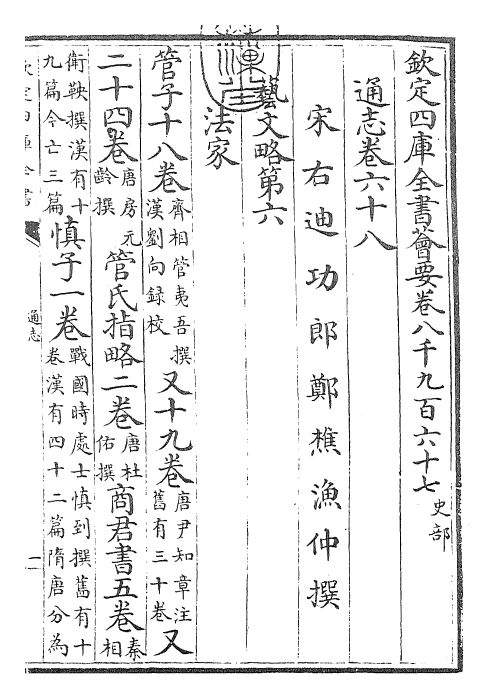 欽定四庫全書薈要卷八千九百六十七 史部
通志卷六十八
宋右迪功郎鄭樵漁仲撰
藝文略第六
法家
管子十八卷 齊相管夷吾撰 漢劉向録校 又十九卷 唐尹知章注 舊有三十卷 又
二十四卷 唐房元 齡撰 管氏指略二卷 唐杜 佑撰 商君書五卷 秦相
衛鞅撰漢有十 九篇今亡三篇 慎子一卷 戰國時處士慎到撰舊有十 卷漢有四十二篇隋唐分為
通志
一